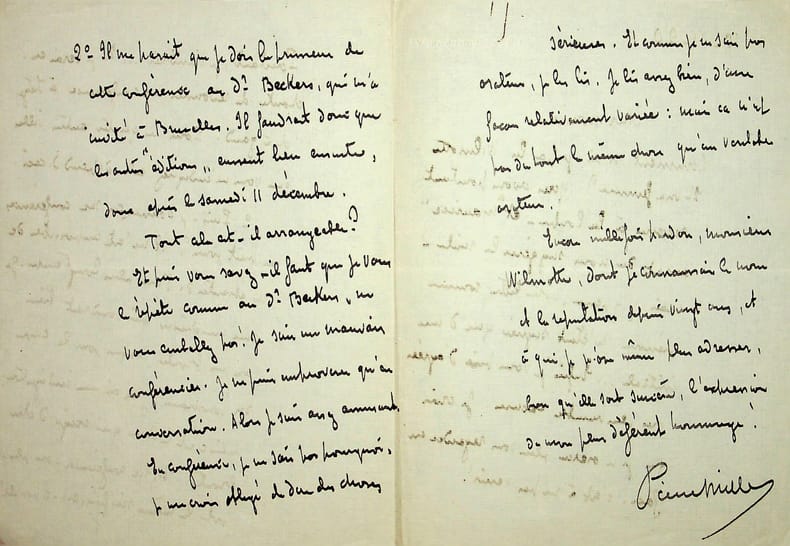 2º Il me parait que je dois la primeur de
cette conférence au Dr Beckers, qui m'a
invité à Bruxelles. Il faudrait donc que
les autres "éditions" eussent lieu ensuite,
donc après le samedi 11 décembre.
Tout cela est-il arrangeable?
Et puis vous savez - il faut que je vous
le répète comme au Dr Beckers, ne
vous emballez pas! Je suis un mauvais
conférencier. Je ne puis improviser qu'en
conversation. Alors je suis assez amusant.
En conférence, je ne sais pas pourquoi,
je me crois obligé de dire des choses
sérieuses. Et comme je ne suis pas
orateur, je les lis. Je lis assez bien, d'une
façon relativement variée : mais ça n'est
pas du tout la même chose qu'un véritable
orateur.
Encore mille fois pardon, monsieur
Wilmotte, dont je connaissais le nom
et la réputation depuis vingt ans, et
à qui je n'ose même plus adresser,
bien qu'elle soit sincère, l'expression
de mon plus déférent hommage!
Pierre Mille